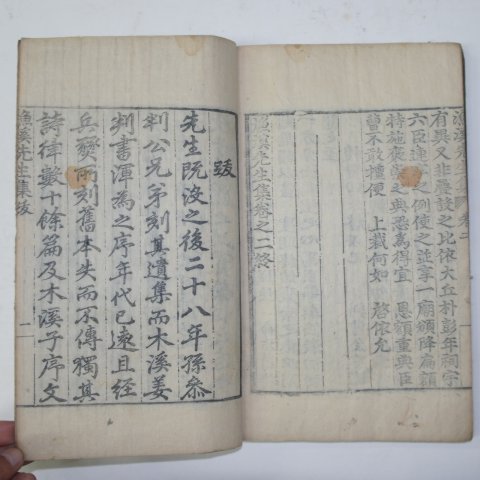 漁溪先生集 卷二
有異又非疊設之比依大丘朴彭年祠宇
六臣之例使之並享一廟頒降扁額
特施褒之典悉為得宜 恩額重典臣
曹不敢擅便 上裁何如 啓依允
漁溪先生集卷之二終
跋
先生旣沒之後二十八年孫叅
判公兄弟刻其遺集而木溪姜
判書渾為之序年代已遠且經
兵燹所刻舊本失而不傳獨其
詩律數十餘篇及木溪子序文
漁溪先生集跋 一